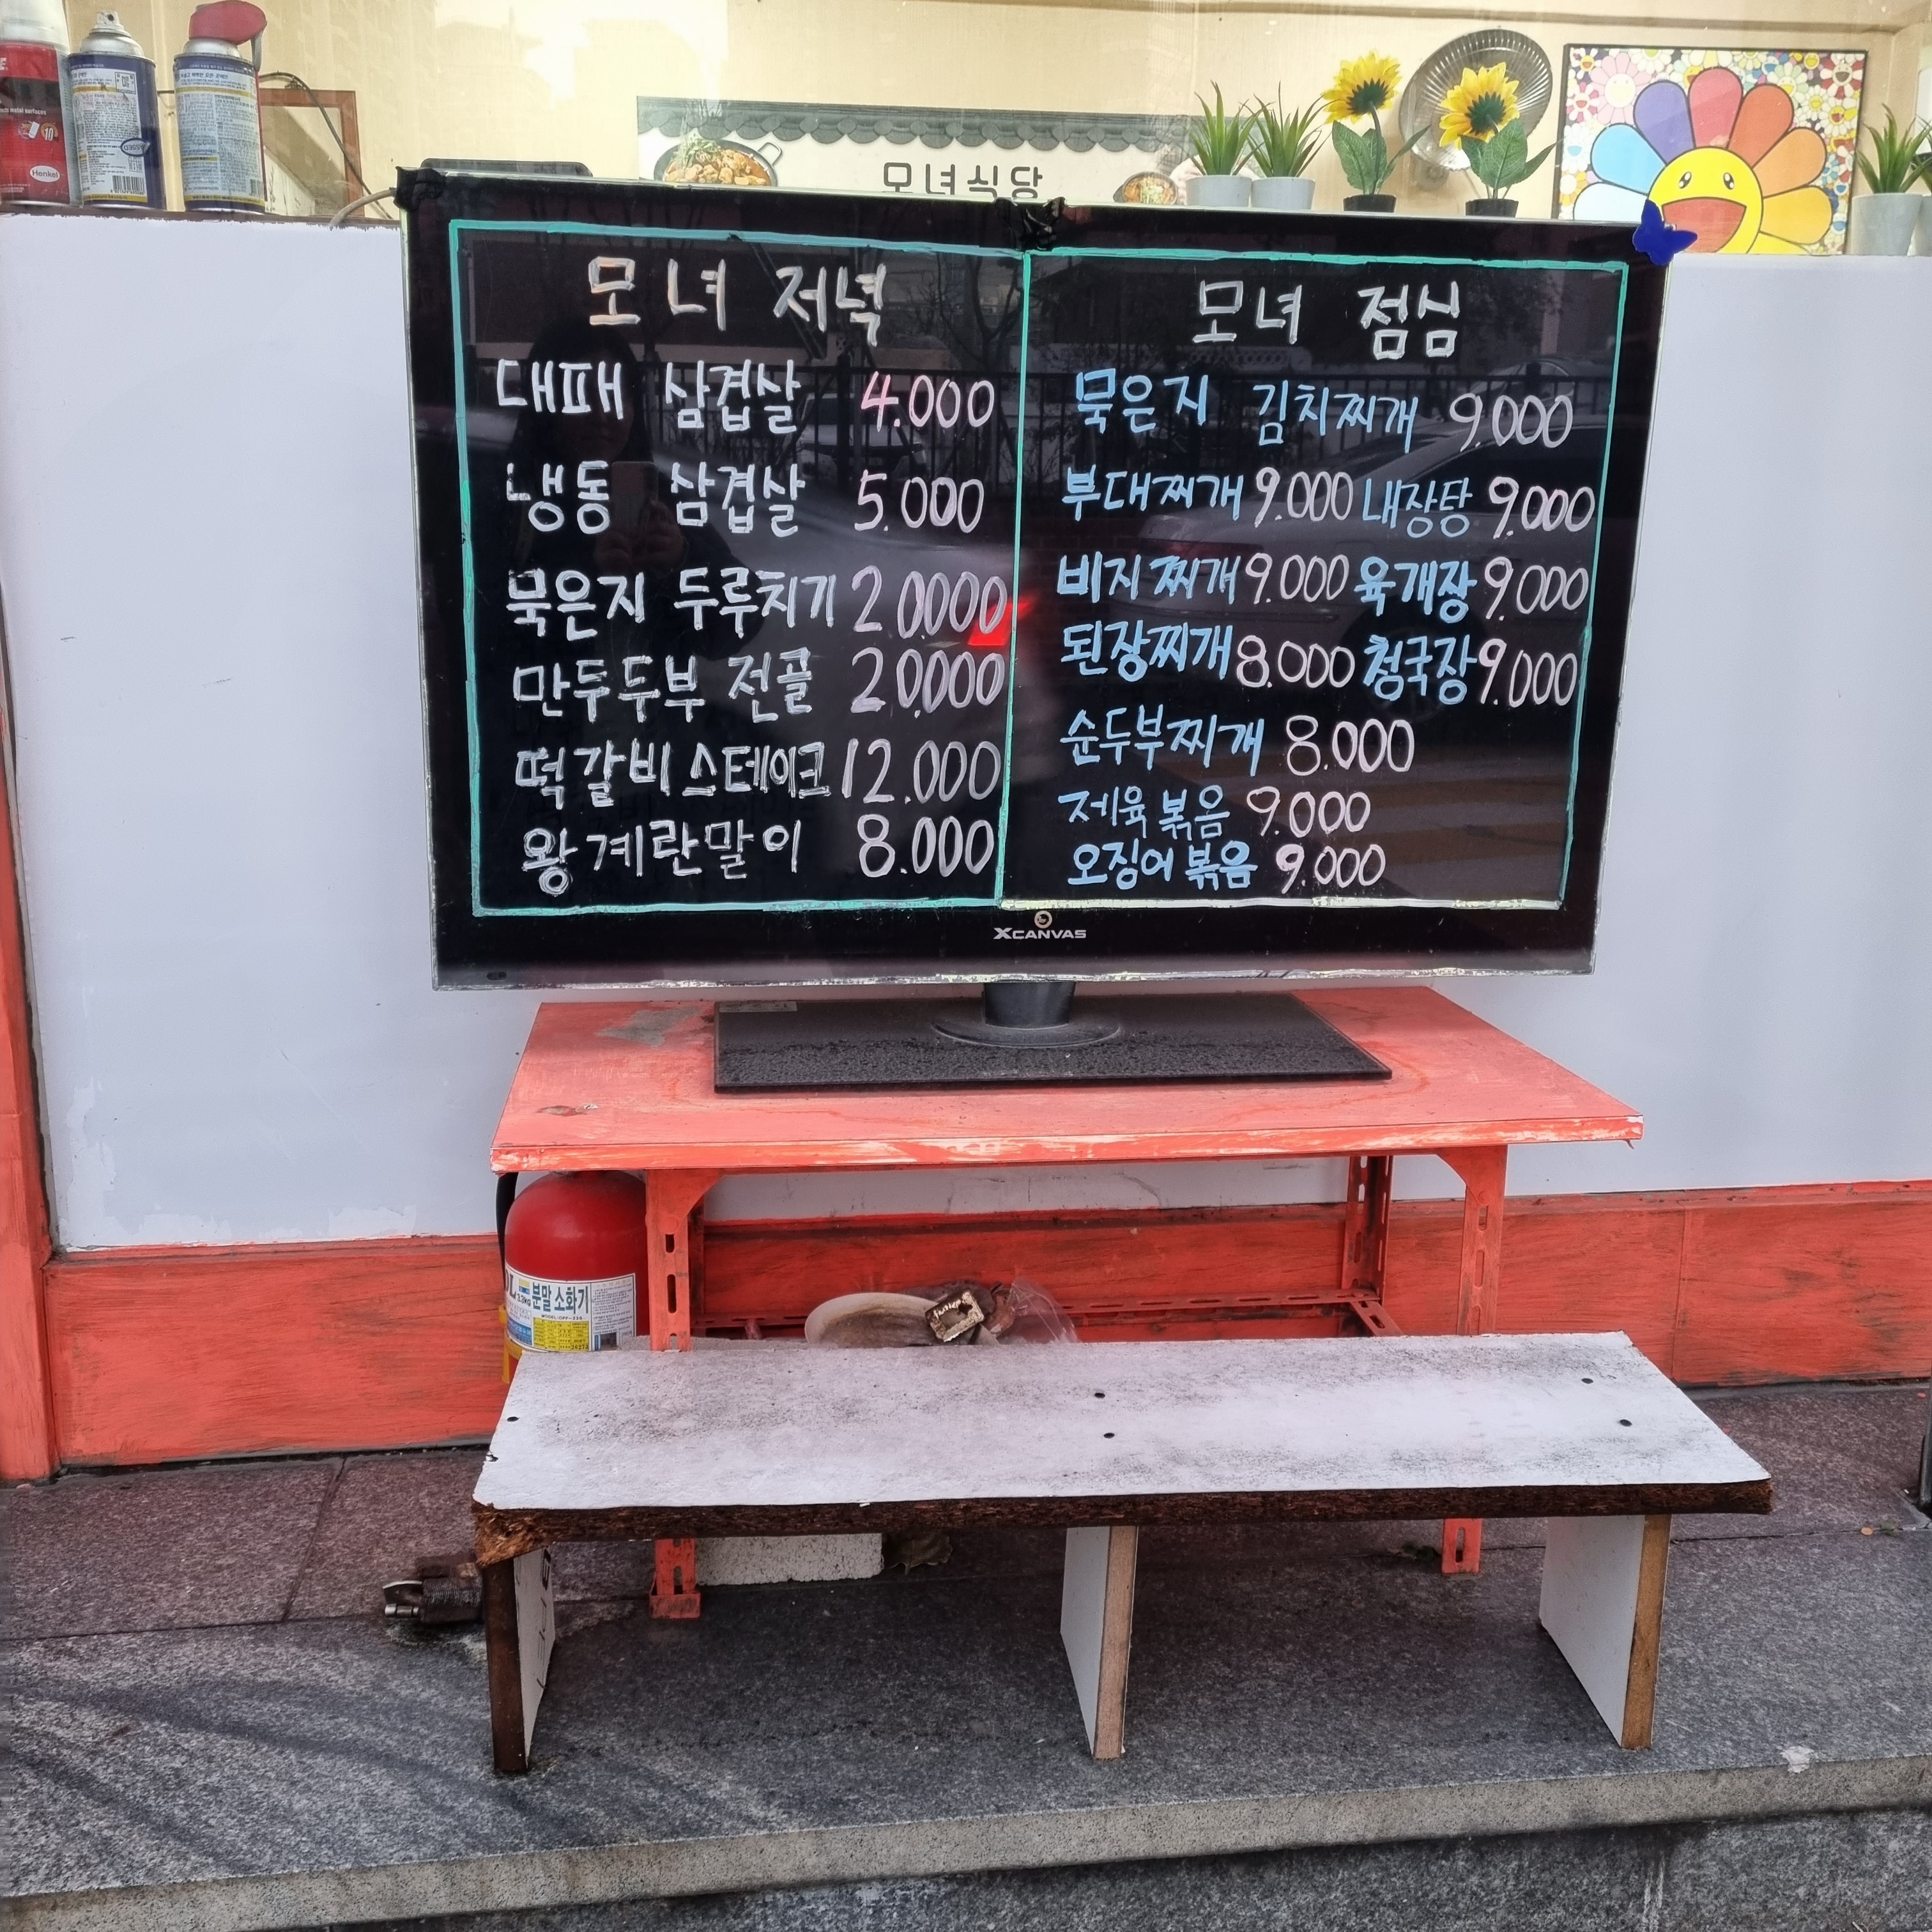 모녀식당
모녀 저녁
대패 삼겹살 4.000
냉동 삼겹살 5.000
묵은지 두루치기 20.000
만두두부 전골 20.000
떡갈비스테이크 12.000
왕계란말이 8.000
모녀 점심
묵은지 김치찌개 9.000
부대찌개 9.000 내장탕 9.000
비지찌개 9.000 육개장 9.000
된장찌개 8.000 청국장 9.000
순두부찌개 8.000
제육볶음 9.000
오징어볶음 9.000
XCANVAS
Henkel
분말소화기